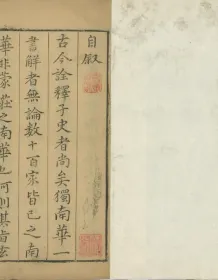 自敘
古今詮釋子史者尚矣獨南華一
書解者無論數十百家皆已之南
華非蒙莊之南華也何則其旨玄